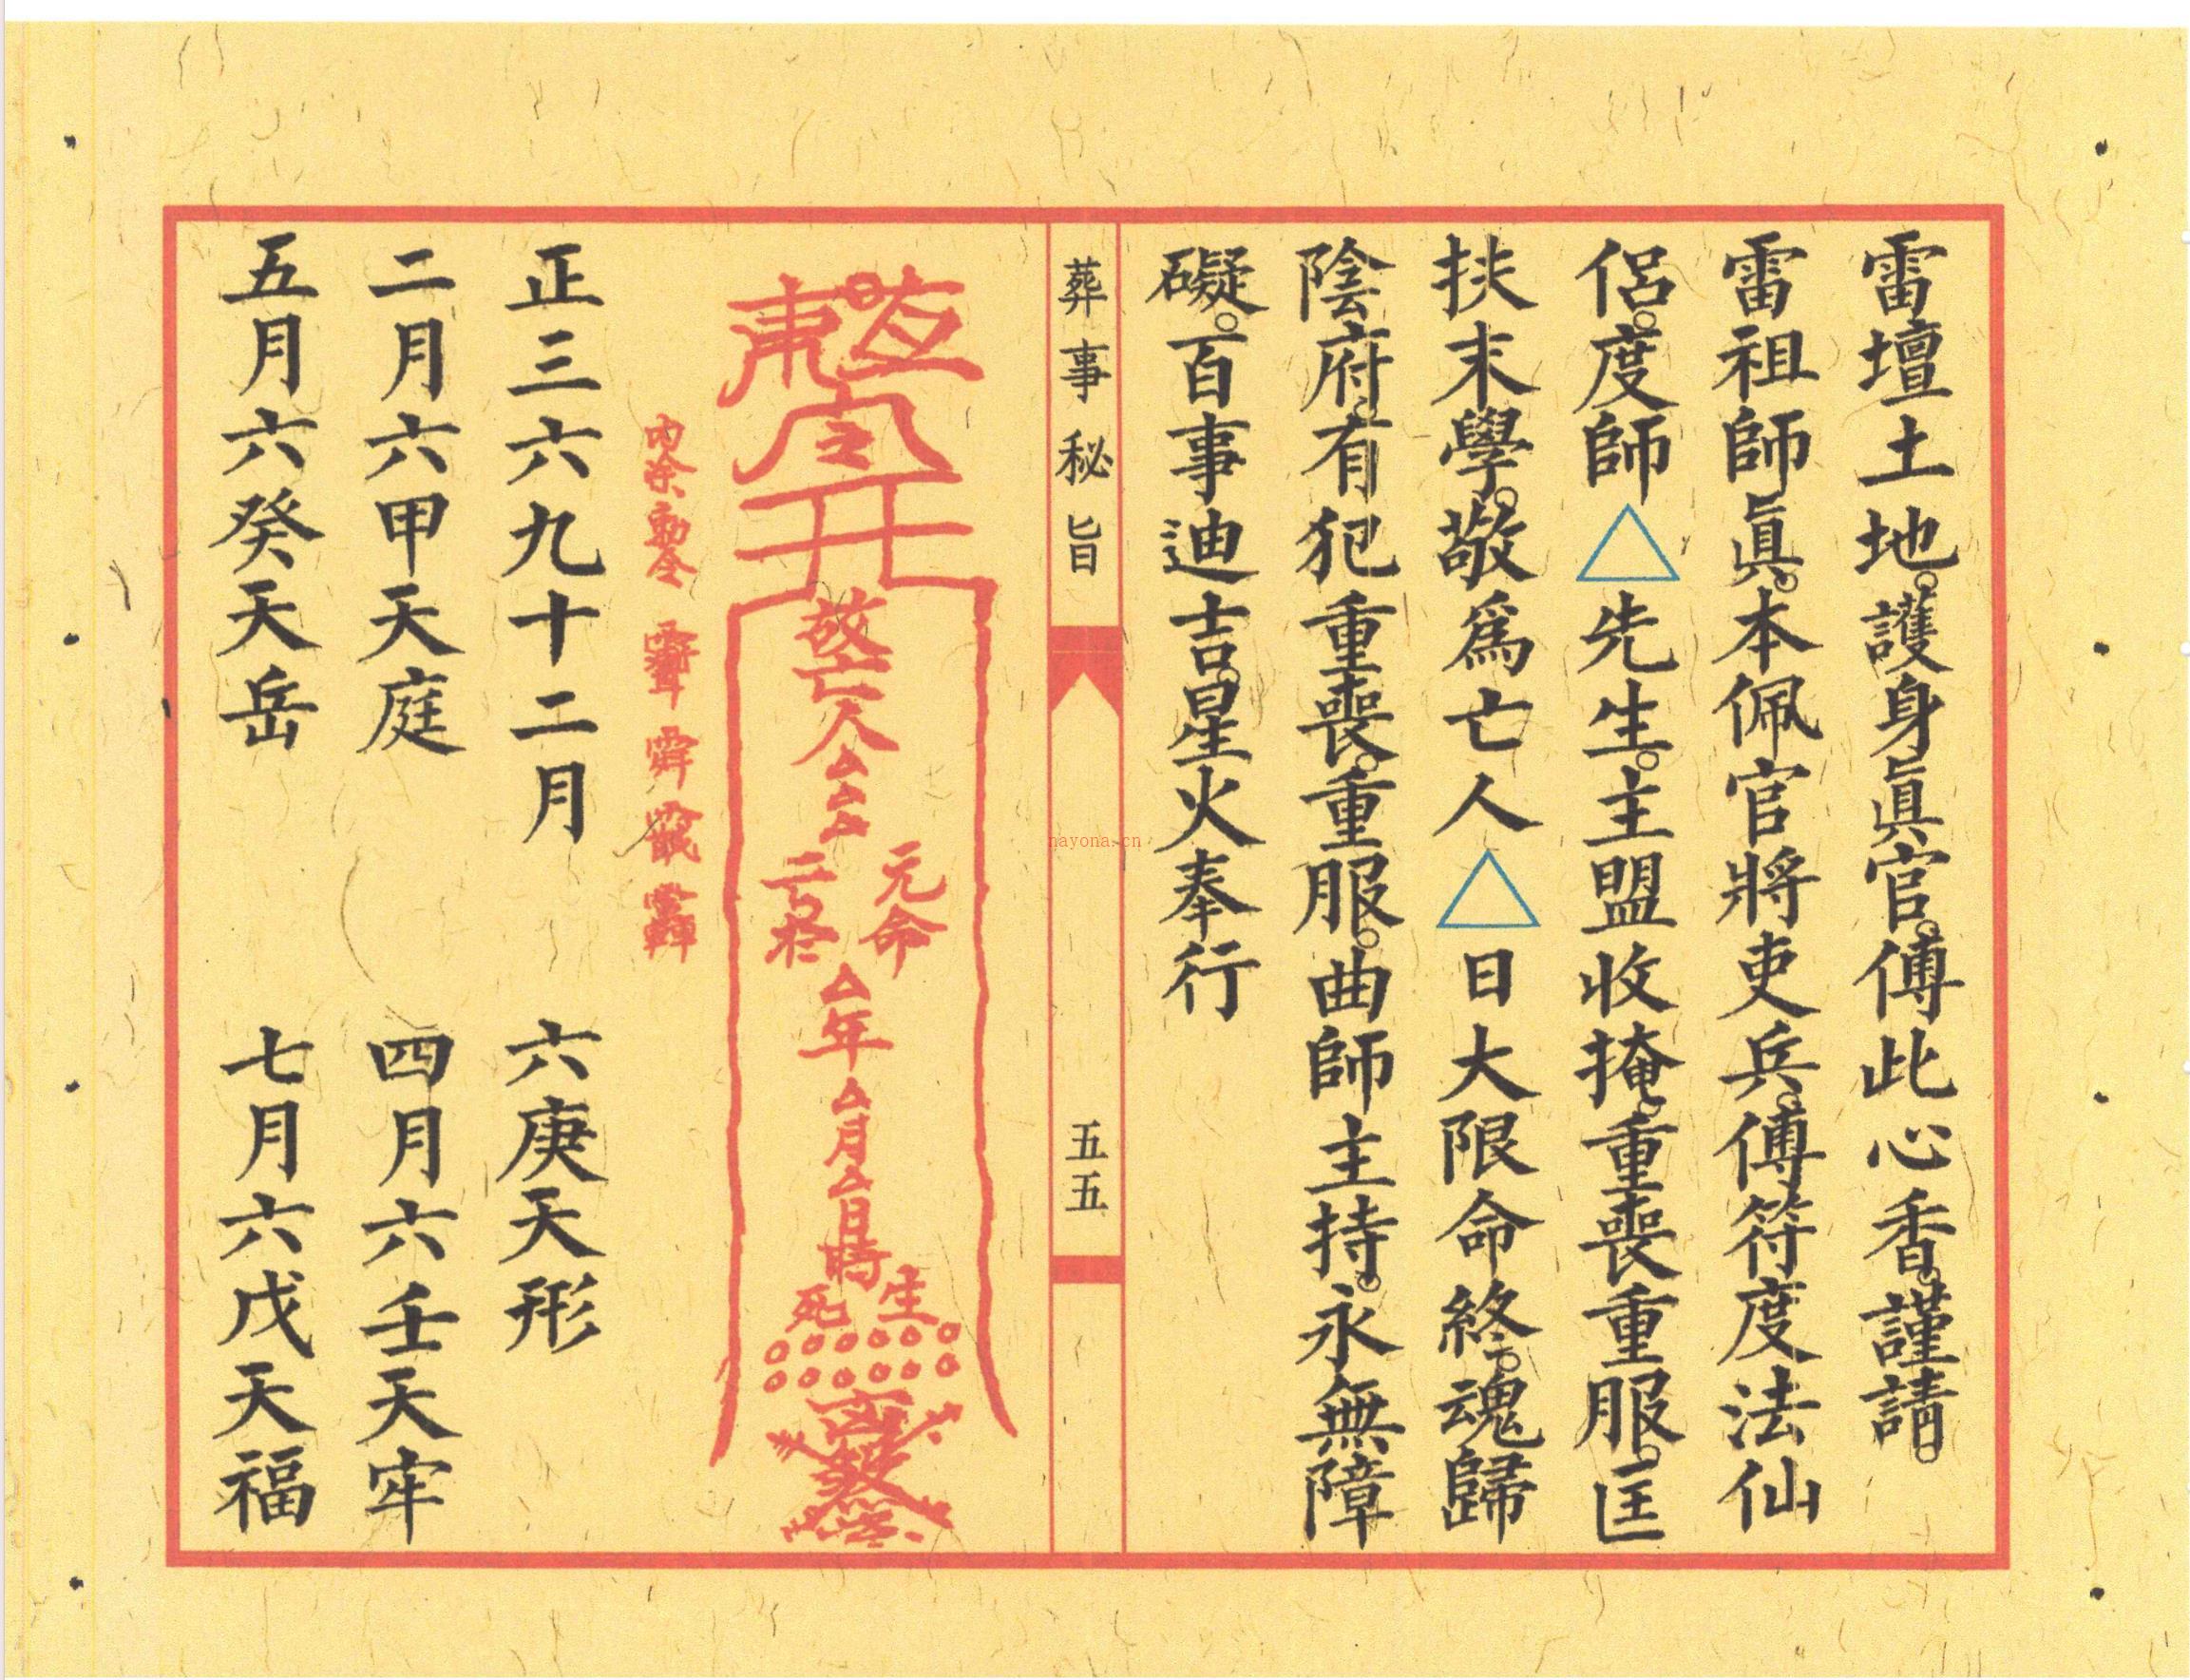 雷壇土地。護身眞官。傅此心香。謹請。
雷祖師眞。本佩官將吏兵。傅符度法仙
侶。度師△先生。主盟收掩。重喪重服。匡
扶末學。敬爲亡人△日大限命終。魂歸
陰府。有犯重喪。重服。曲師主持。永無障
礙。百事迪吉。星火奉行
葬事秘旨
五五
敬亡人△△△
元命
△年△月△日時
生
死
內涂勅令
正三六九十二月 六庚天形
二月六甲天庭 四月六壬天牢
五月六癸天岳 七月六戊天福
nayona.cn